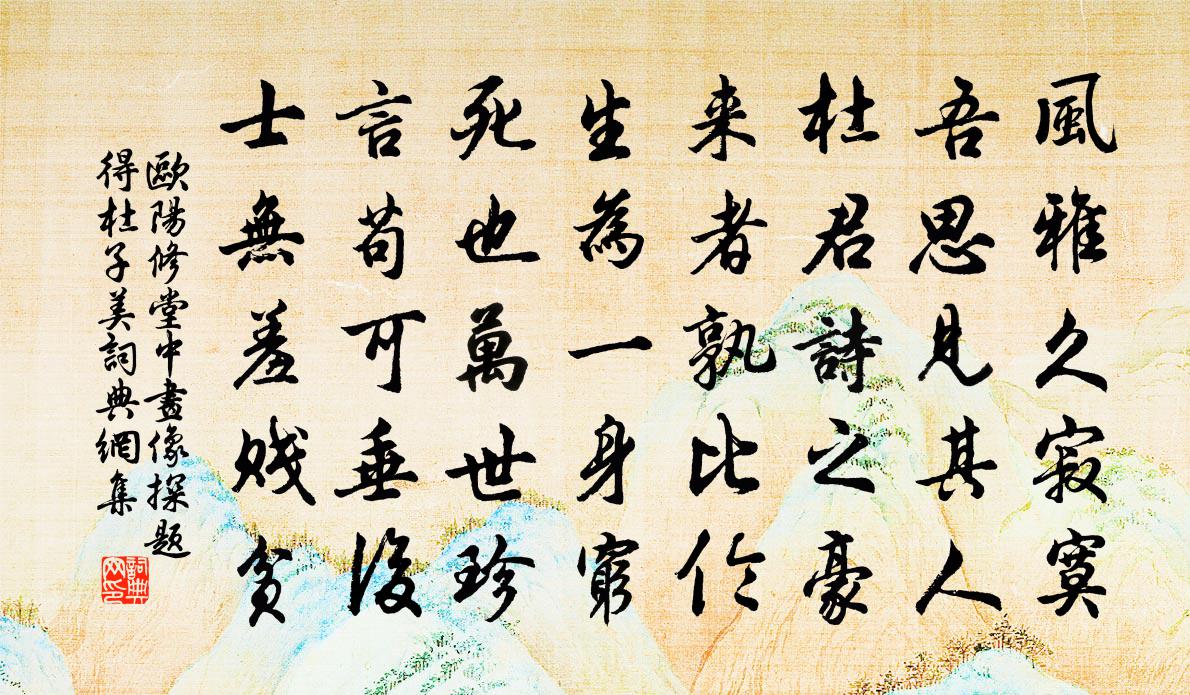 風雅久寂寞
吾思見其人
杜君詩之豪
来者孰比伦
生為一身窮
死也萬世珍
言苟可垂後
士無羞贱貧
歐陽修堂中畫像探題
得杜子美詞典網集
詞典
网印